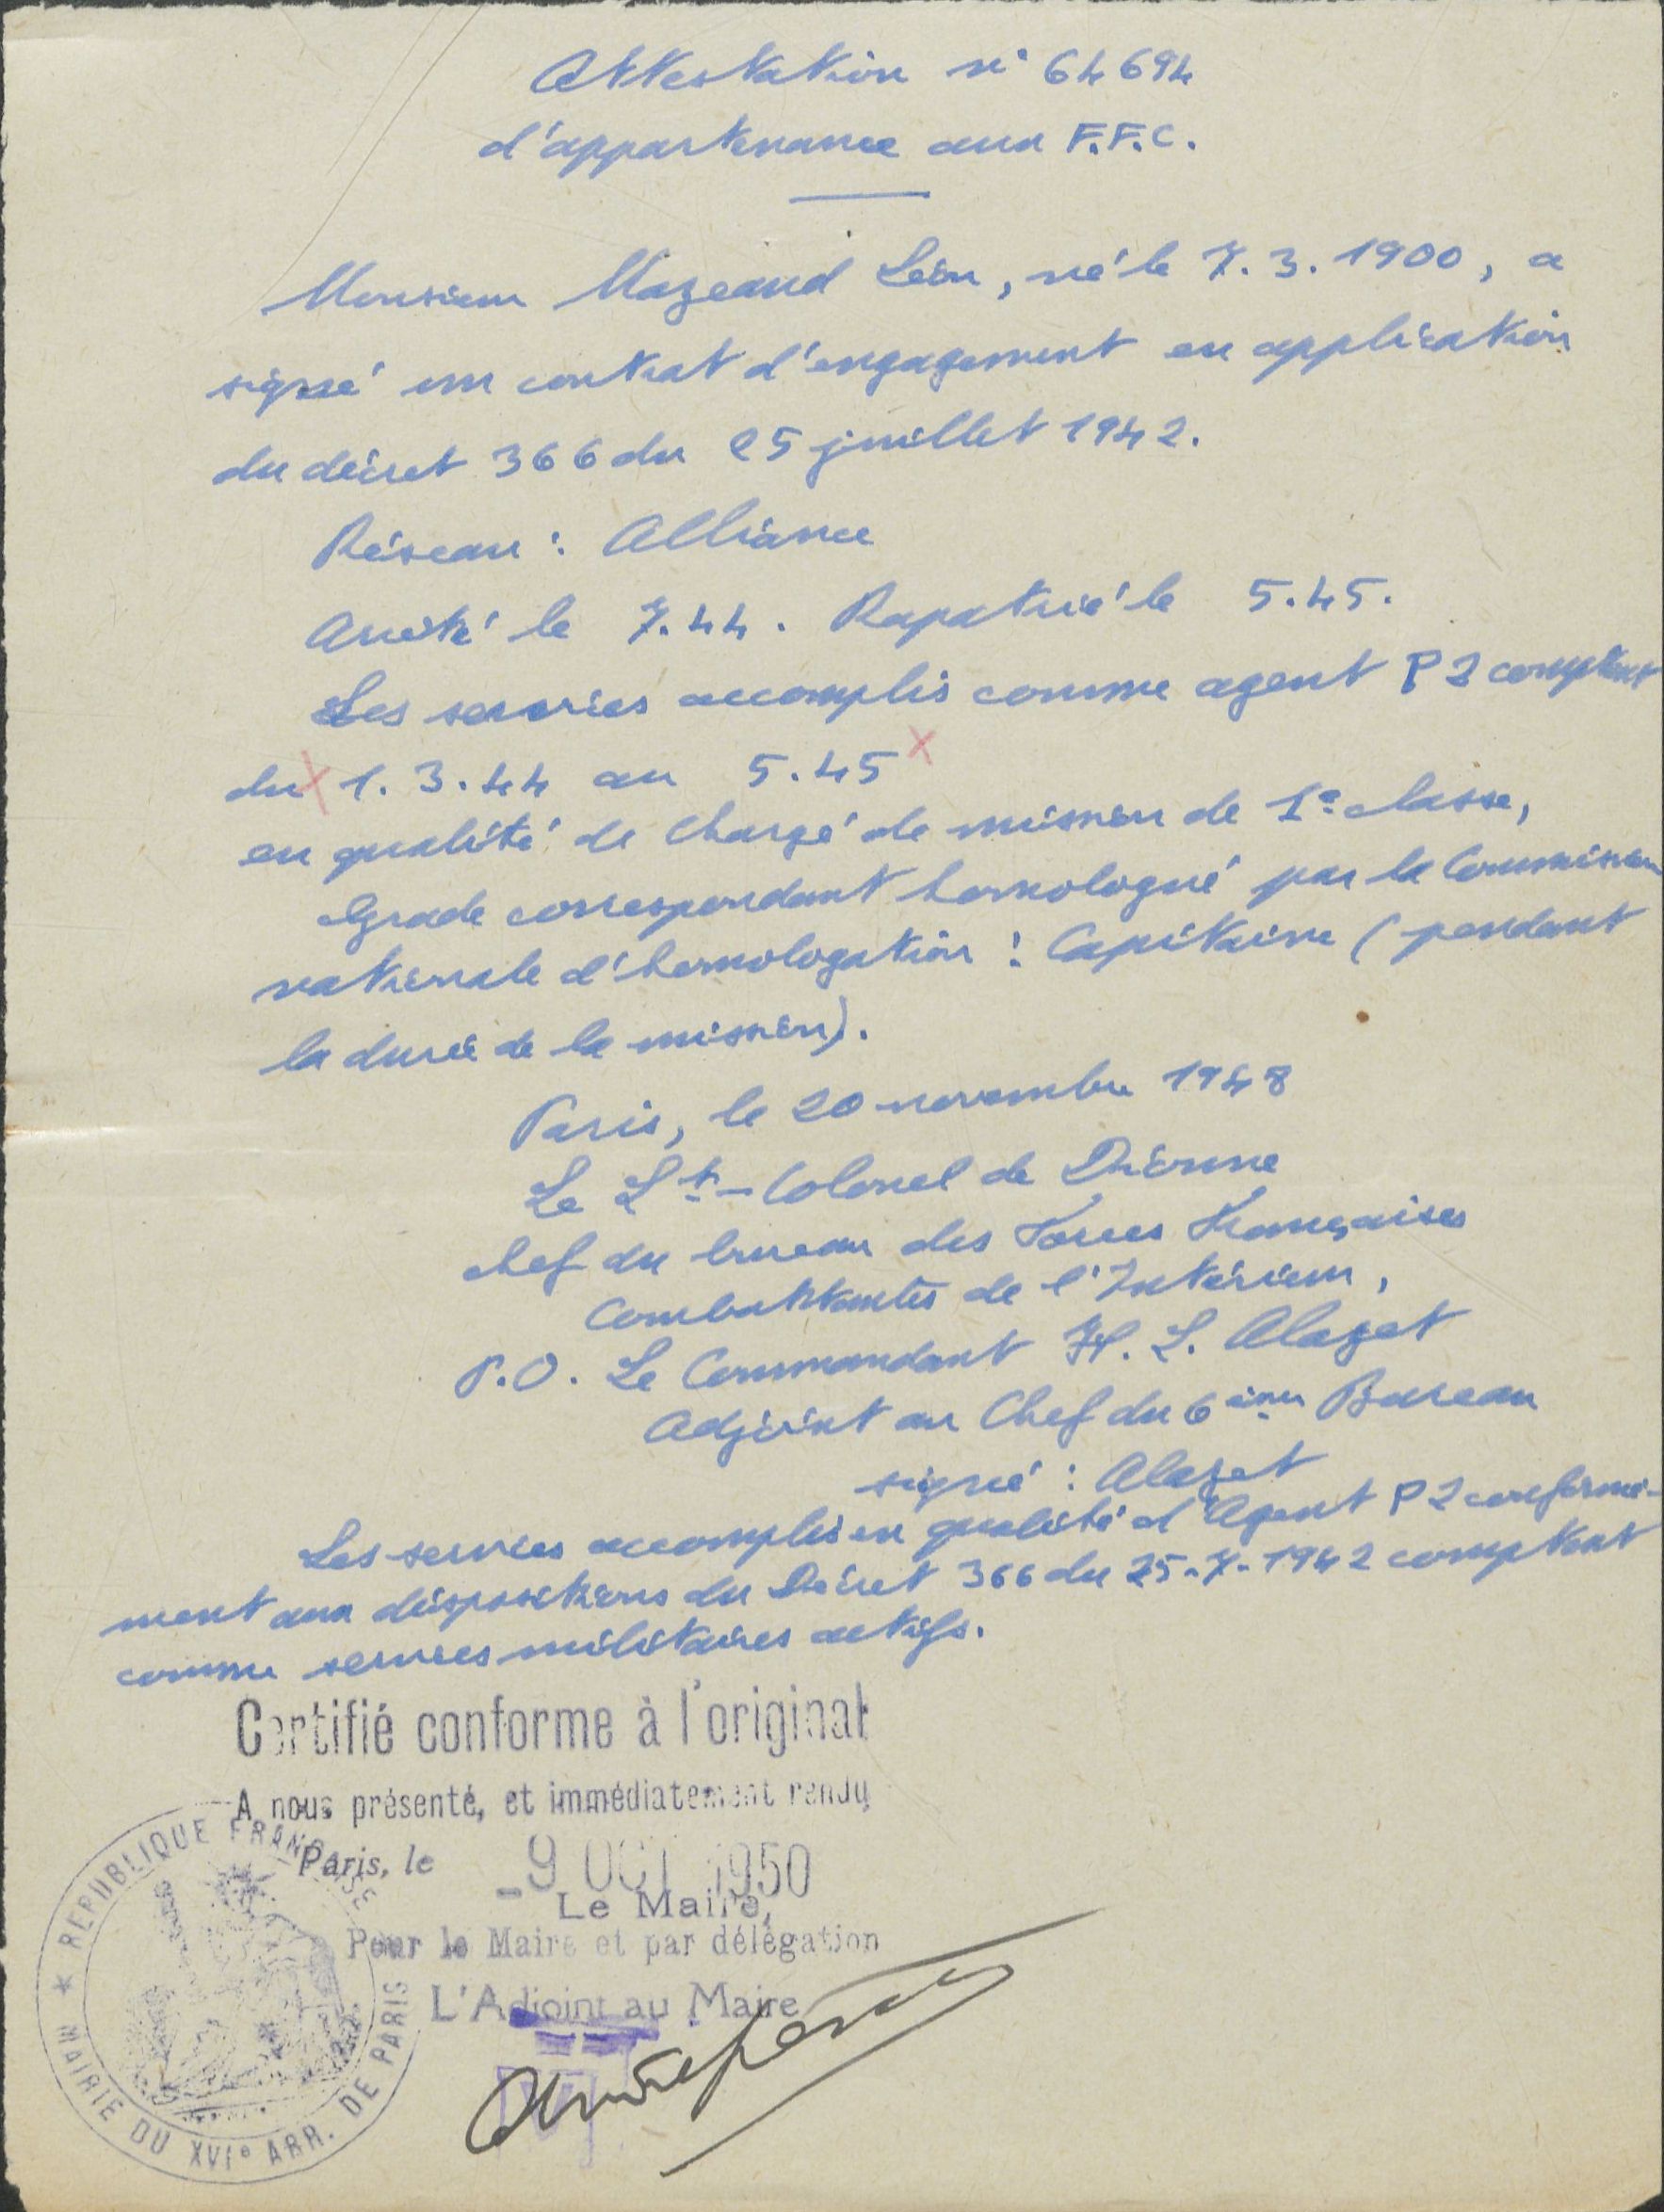 Attestation n° 64694
d'appartenance aux F.F.C.
Monsieur Mazeaud Léon, né le 7.3.1900, a
signé un contrat d'engagement en application
du décret 366 du 25 juillet 1942.
Réseau : Alliance
Arrêté le 7.44. Rapatrié le 5.45.
Les services accomplis comme agent P2 comptent
du x 1.3.44 au 5.45 x
en qualité de Chargé de mission de 1e classe,
Grade correspondant homologué par la Commission
nationale d'homologation : Capitaine (pendant
la durée de la mission).
Paris, le 20 novembre 1948
Le Lt-Colonel de Dionne
chef du bureau des Forces Françaises
Combattantes de l'Intérieur,
P.O. Le Commandant H. L. Alazet
Adjoint au Chef du 6ème Bureau
signé : Alazet
Les services accomplis en qualité d'Agent P2 conformé-
ment aux dispositions du Décret 366 du 25.7.1942 comptent
comme services militaires actifs.
Certifié conforme à l'original
A nous présenté, et immédiatement rendu
Paris, le -9 OCT 1950
Le Maire,
Pour le Maire et par délégation
L'Adjoint au Maire
REPUBLIQUE FRANÇAISE
* MAIRIE DU XVIe ARR. DE PARIS